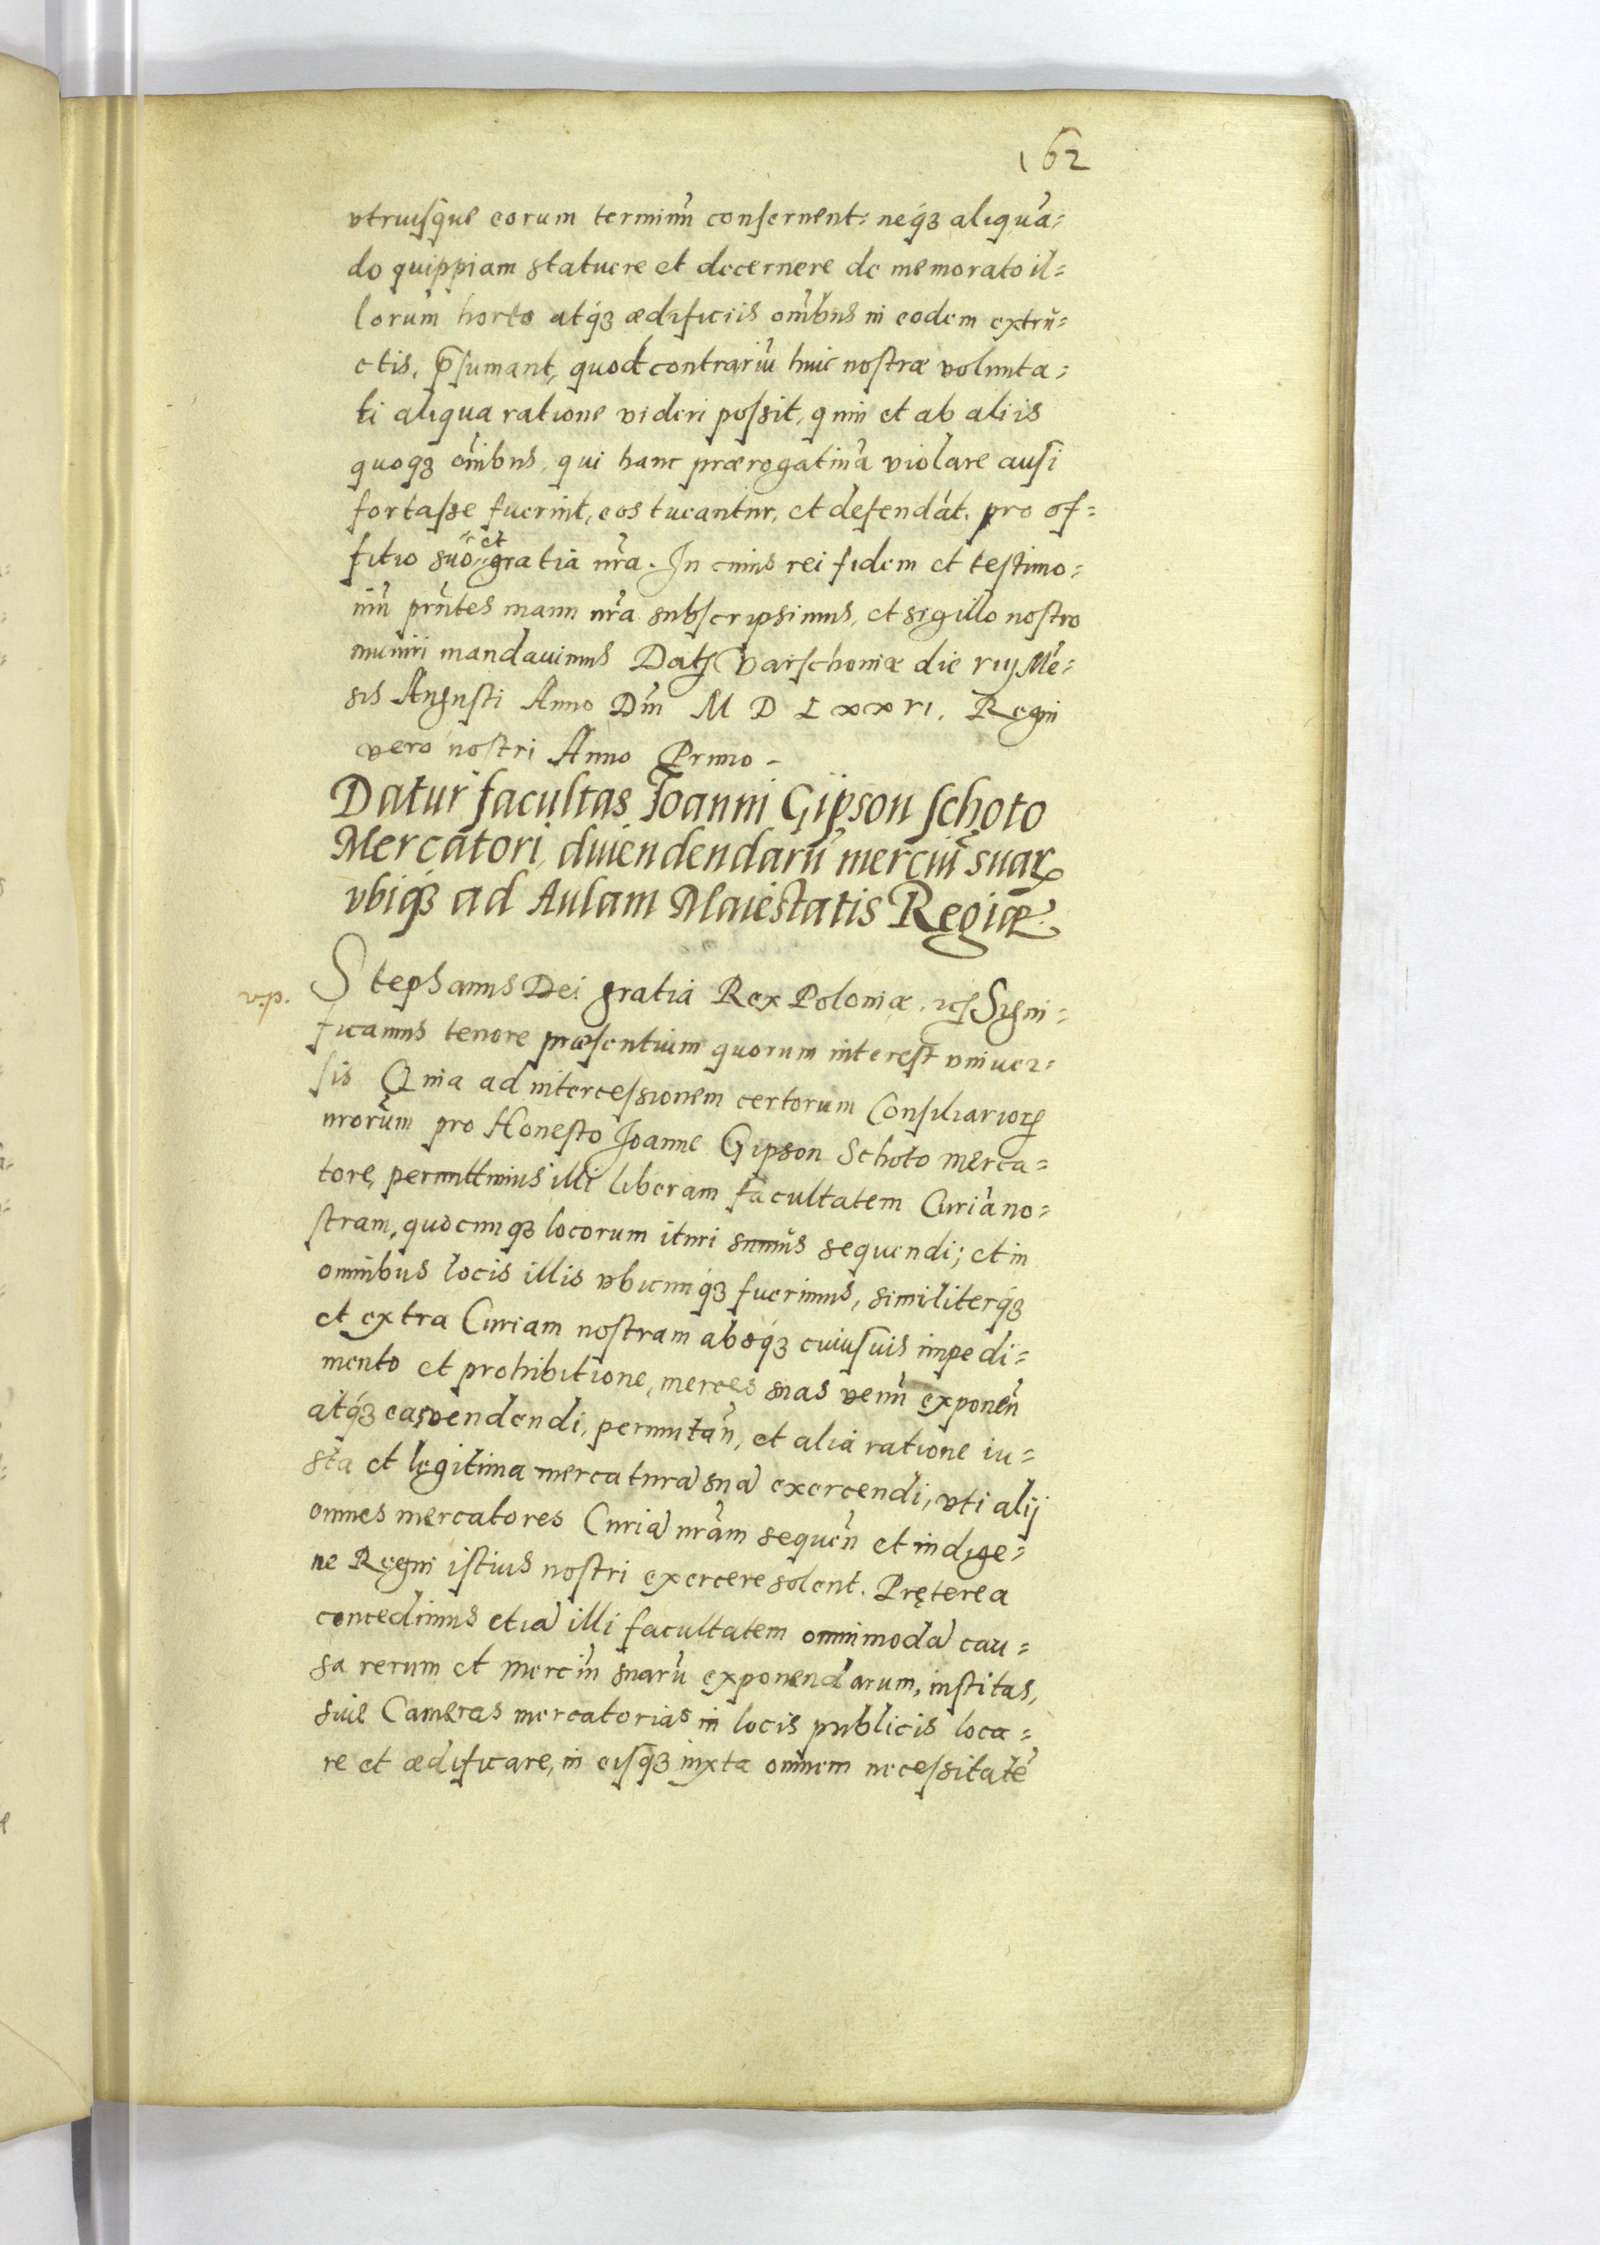 162
vtruisque eorum terminū conseruent: neq́ꝫ aliquā=
do quippiam statuere et decernere de memorato il=
lorum horto atq́ꝫ ædificiis oībus in eodem extrū=
ctis, p̄sumant, quod contrariū huic nostræ volunta=
ti aliqua ratione videri possit, quin et ab aliis
quoqꝫ oībus, qui hanc prærogatiuā violare ausi
fortasse fuerint, eos tueantur, et defendāt, pro of=
fitio suo et gratiā nr̄a. In cuius rei fidem et testimo=
niū pn̄tes manu nr̄a subscripsimus, et sigillo nostro
muniri mandauimus Datꝭ Varschouiæ die VIIJ Mē=
sis Augusti Anno Dn̄i M D L xx VI. Regni
vero nostri Anno Primo –
Datur facultas Joanni Gipson Schoto
Mercatori, diuendendarū merciū suarꝝ
vbiq́ꝫ ad Aulam Maiestatis Regiæ.
v.p.
Stephanus Dei gratia Rex Poloniæ. ꝛcꝭ Signi=
ficamus tenore præsentium quorum interest vniuer=
sis Quia ad intercessionem certorum Consiliariorꝝ
nr̄orum pro Honesto Joanne Gipson Schoto merca=
tore, permittimus illi liberam facultatem Curiā no=
stram, quocunqꝫ locorum ituri sumus sequendi; et in
omnibus locis illis vbicunq́ꝫ fuerimus, similiterq́ꝫ
et extra Curiam nostram absq́ꝫ cuiusuis impedi=
mento et prohibitione, merces suas venū exponen̄
atq́ꝫ eas vendendi, permutan̄, et alia ratione iu=
sta et legitima mercaturā suā exercendi, vti alij
omnes mercatores Curiā nr̄am sequen̄ et indige=
ne Regni istius nostri exercere solent. Pręterea
concedimus etiā illi facultatem omnimodā cau=
sa rerum et merciū suarū exponendarum, institas,
siue Cameras mercatorias in locis publicis loca=
re et ædificare, in eisqꝫ iuxta omnem necessitatē